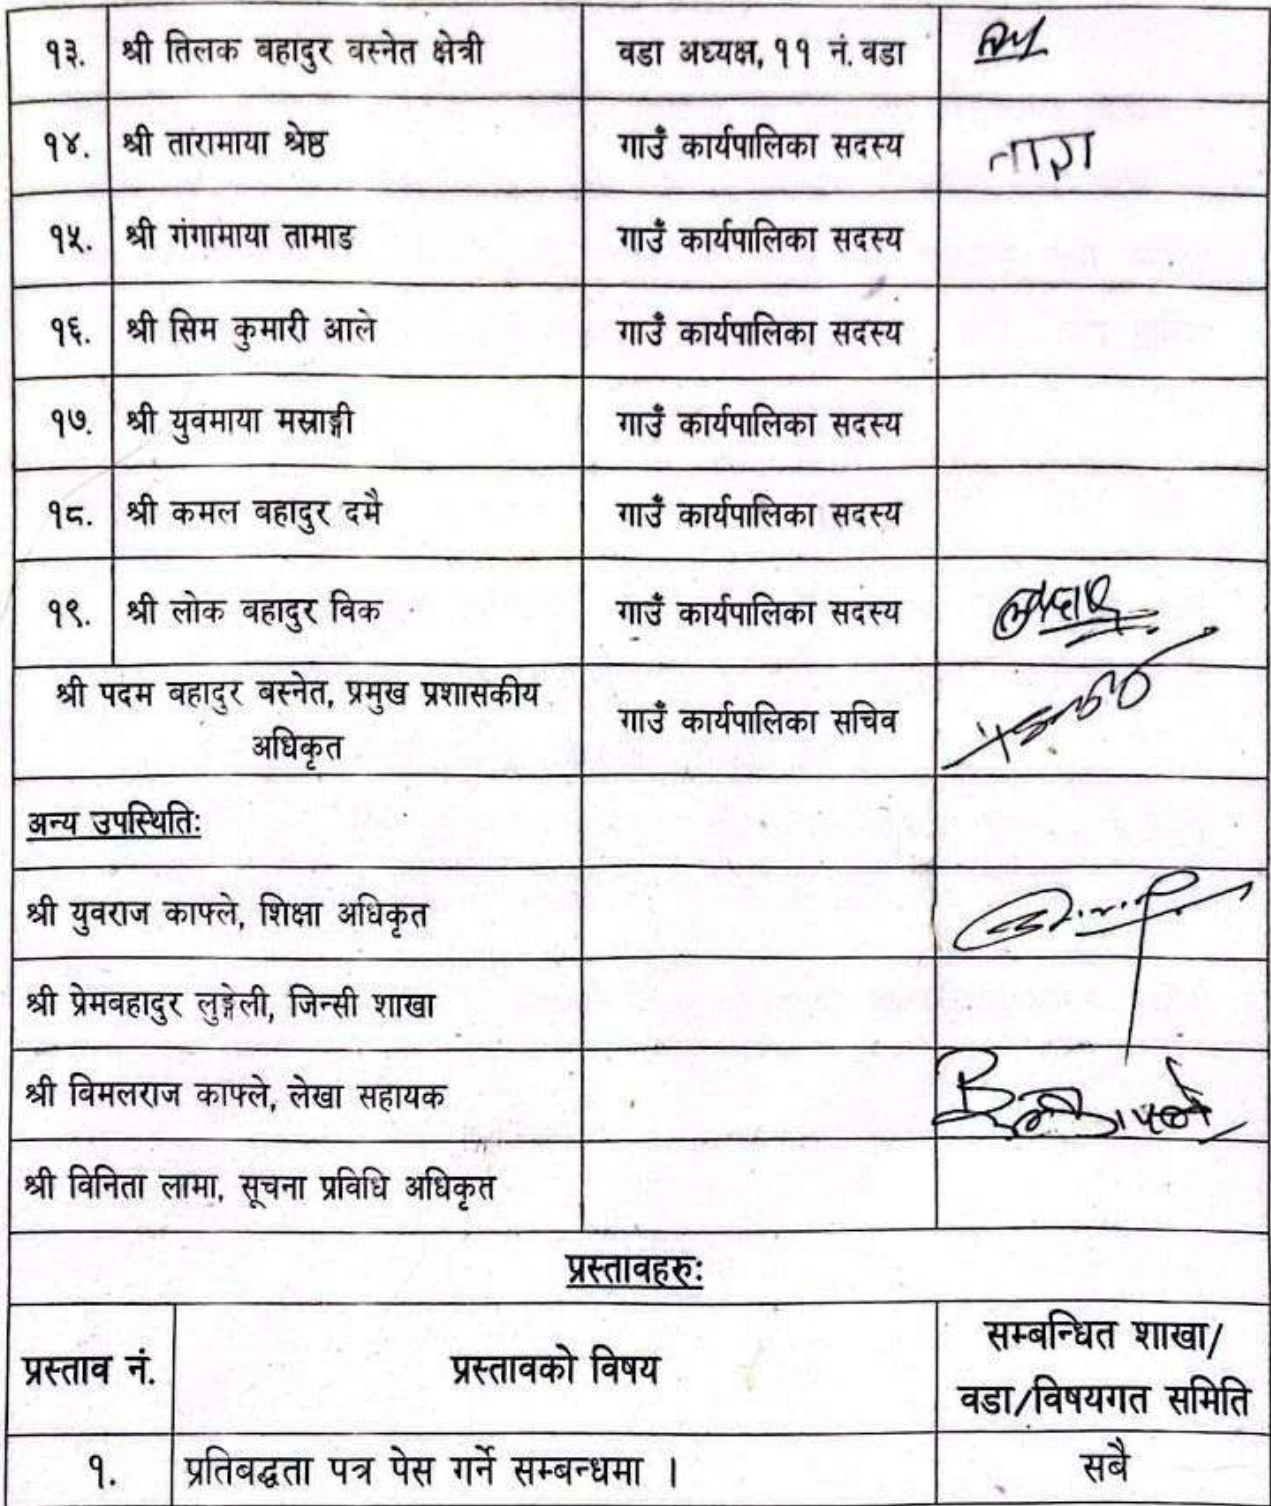 १३. श्री तिलक बहादुर बस्नेत क्षेत्री वडा अध्यक्ष, ११ नं. वडा
१४. श्री तारामाया श्रेष्ठ गाउँ कार्यपालिका सदस्य तारा
१५. श्री गंगामाया तामाङ गाउँ कार्यपालिका सदस्य
१६. श्री सिम कुमारी आले गाउँ कार्यपालिका सदस्य
१७. श्री युवमाया मस्राङ्गी गाउँ कार्यपालिका सदस्य
१८. श्री कमल बहादुर दमै गाउँ कार्यपालिका सदस्य
१९. श्री लोक बहादुर विक गाउँ कार्यपालिका सदस्य
श्री पदम बहादुर बस्नेत, प्रमुख प्रशासकीय
अधिकृत गाउँ कार्यपालिका सचिव
अन्य उपस्थितिः
श्री युवराज काफ्ले, शिक्षा अधिकृत
श्री प्रेमबहादुर लुङ्गेली, जिन्सी शाखा
श्री विमलराज काफ्ले, लेखा सहायक
श्री विनिता लामा, सूचना प्रविधि अधिकृत
प्रस्तावहरुः
प्रस्ताव नं. प्रस्तावको विषय सम्बन्धित शाखा/
वडा/विषयगत समिति
१. प्रतिबद्धता पत्र पेस गर्ने सम्बन्धमा । सबै